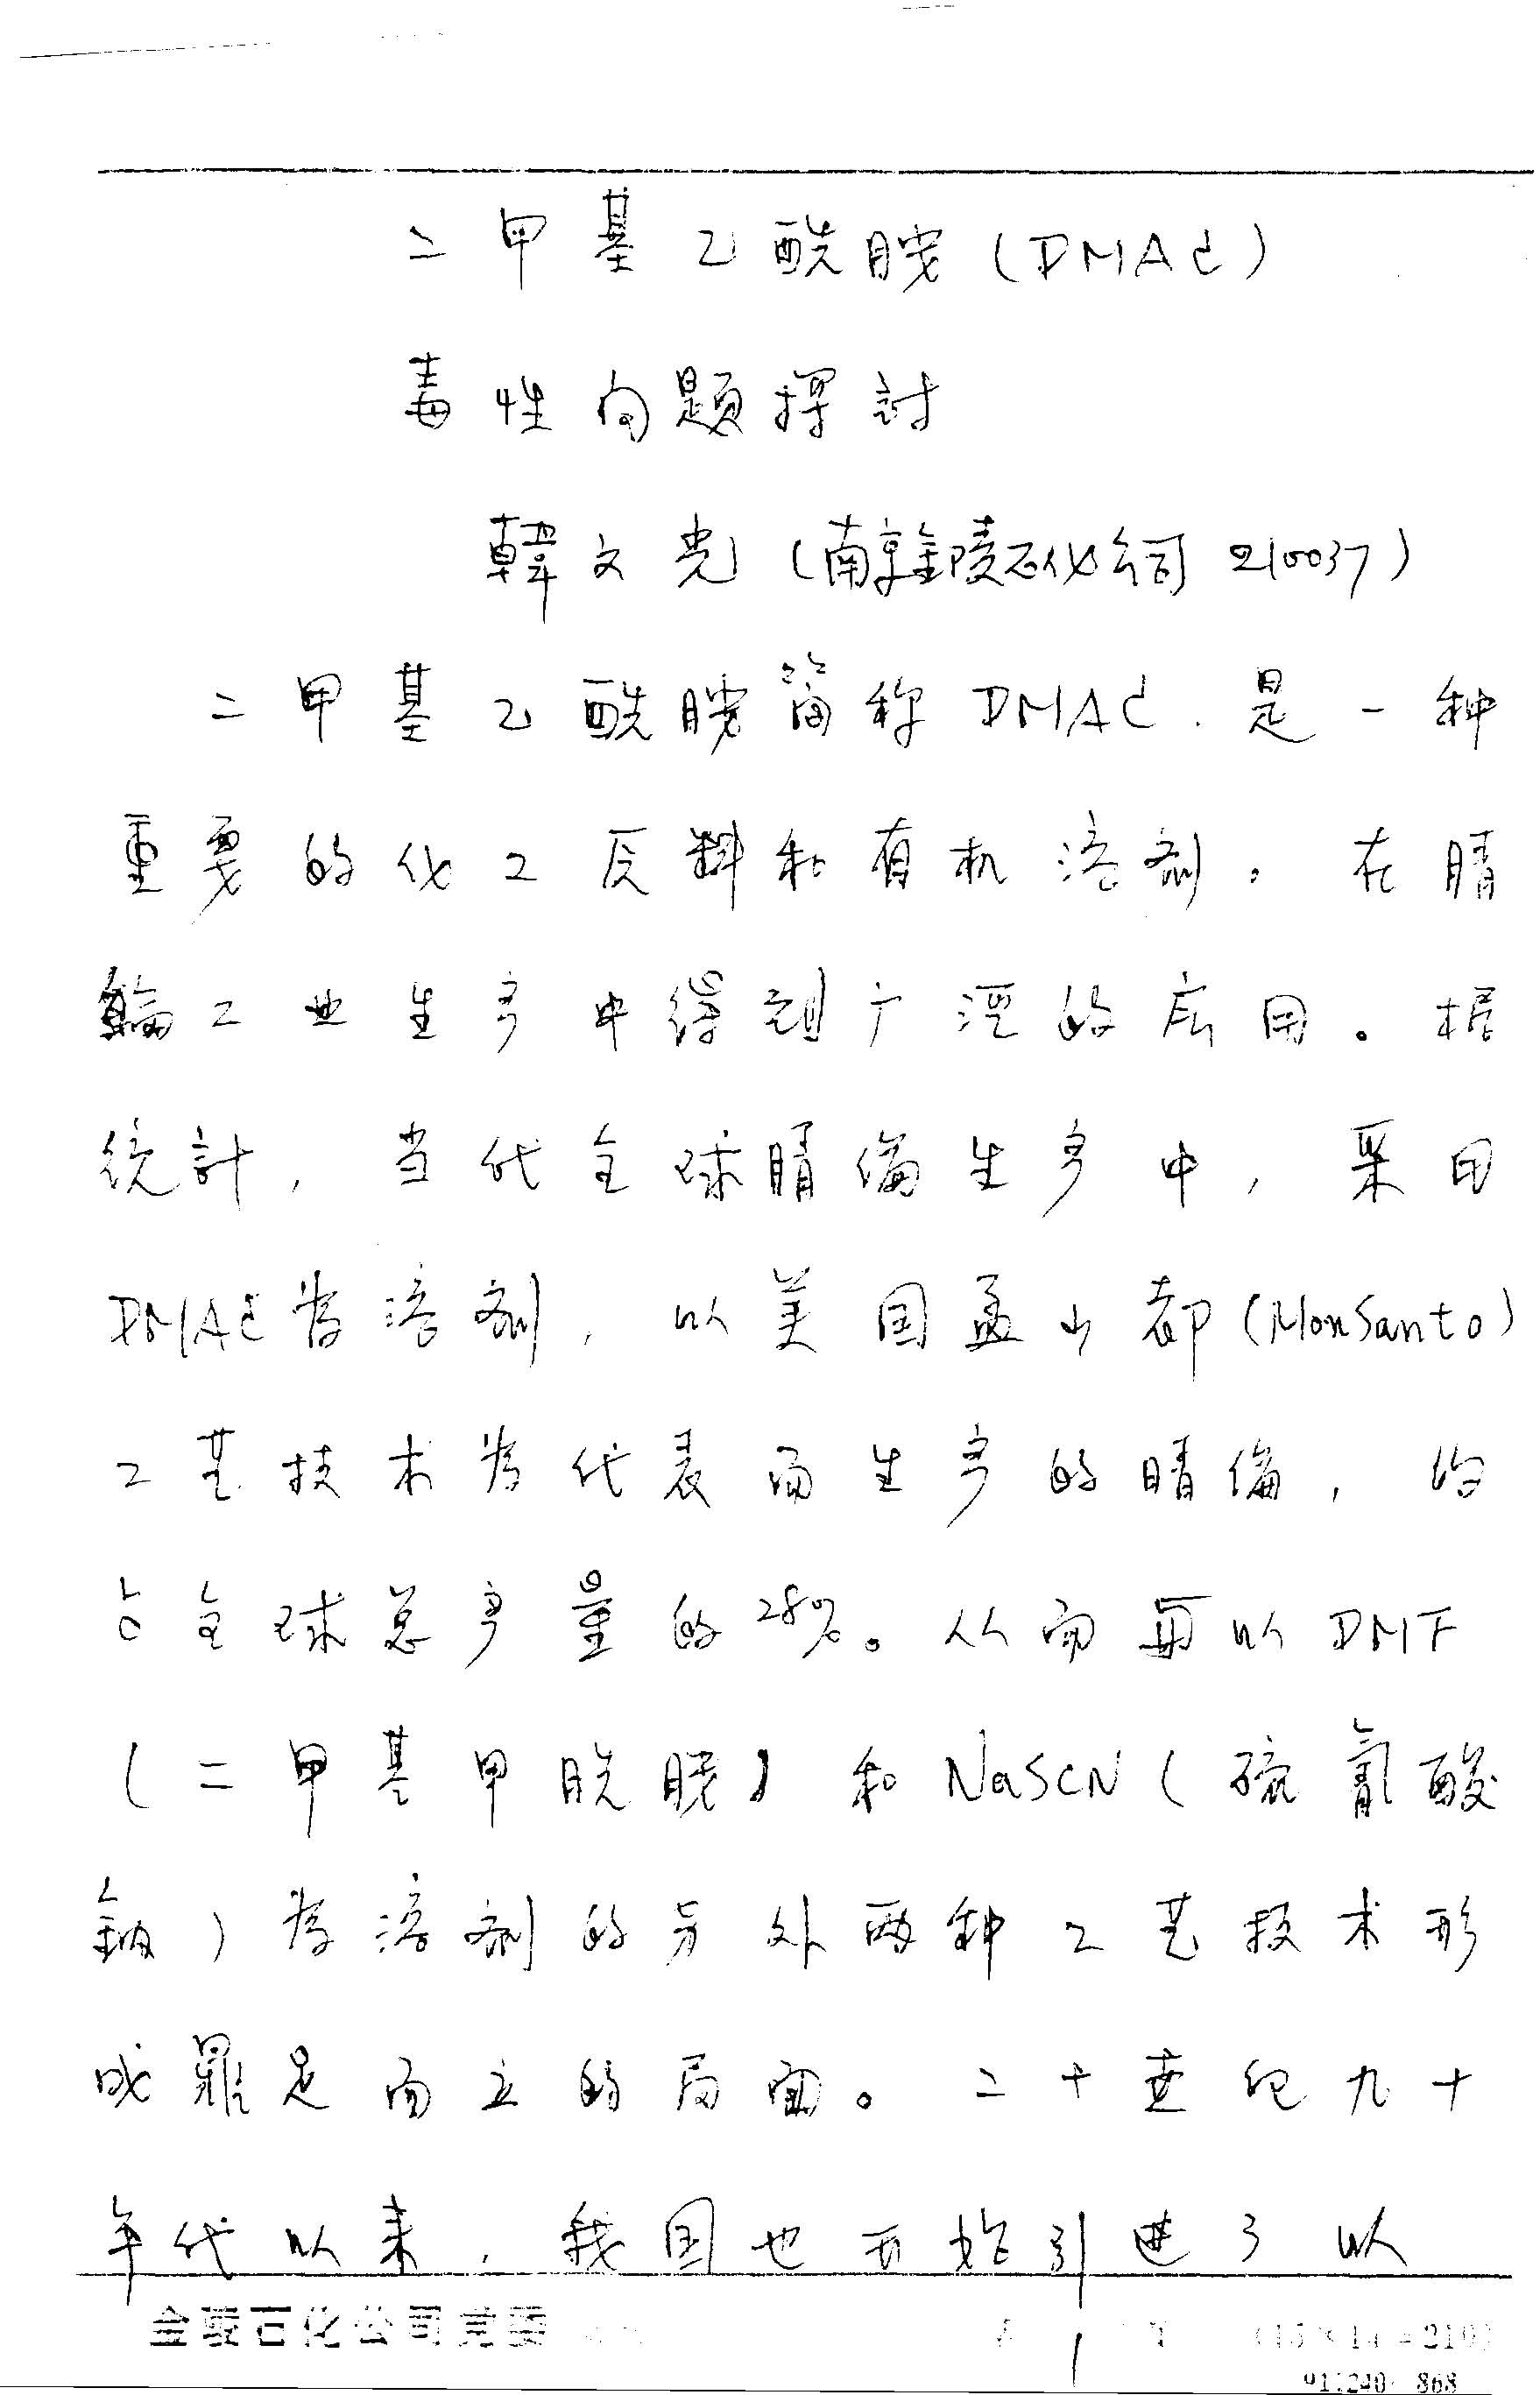 二甲基乙酰胺(DMAC)
毒性问题探討
韓文光(南京金陵石化公司 210037)
二甲基乙酰胺简称DMAC.是一种
重要的化工原料和有机溶剂。在腈
纶工业生产中得到广泛的应用。据
统計,当代全球腈纶生产中,采用
DMAC为溶剂,以美国孟山都(MonSanto)
工艺技术为代表而生产的腈纶,约
占全球总产量的28%。从而再以DMF
(二甲基甲酰胺)和NaSCN(硫氰酸
钠)为溶剂的另外两种工艺技术形
成鼎足而立的局面。二十世纪九十
年代以来.我国也开始引进了以
金陵石化公司党委
1
(15×14=210)
911240 868